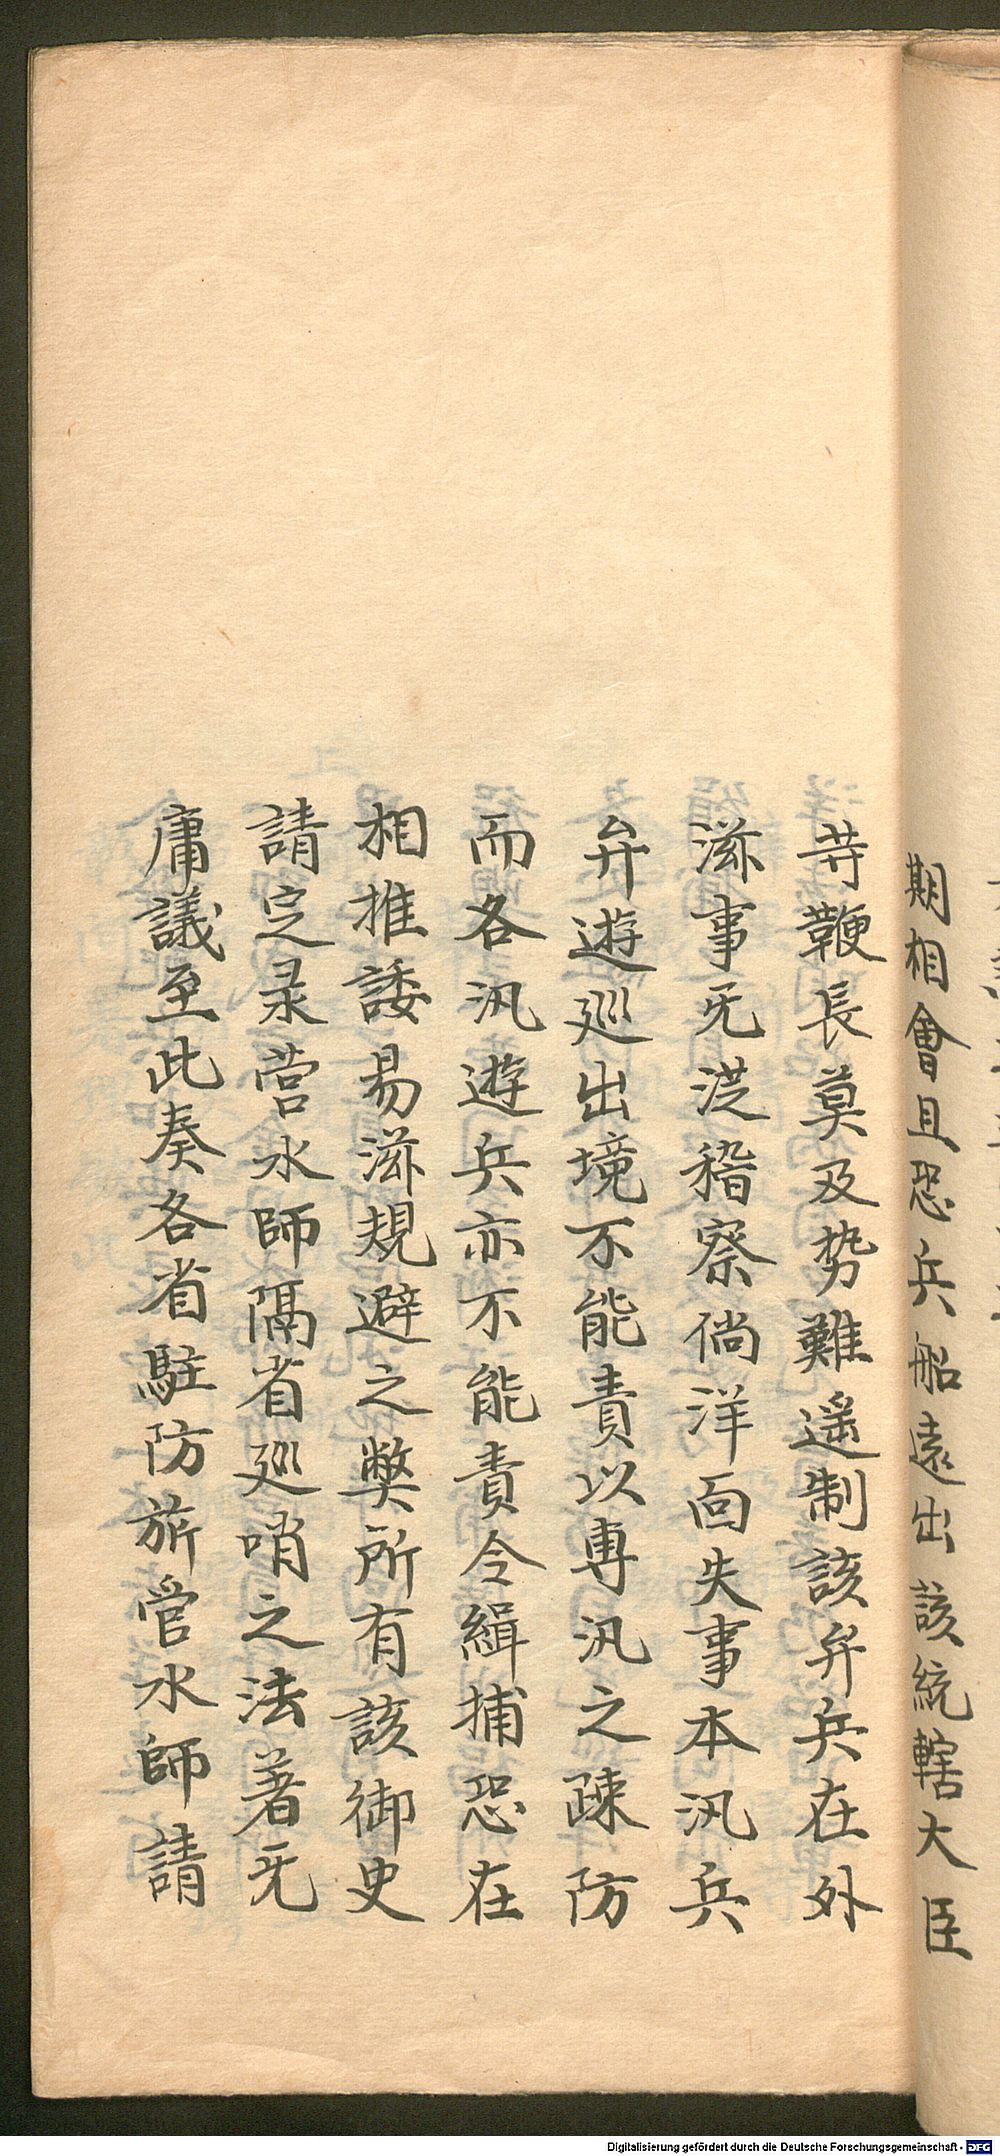 期相會且恐兵船遠出該統轄大臣
苛鞭長莫及势難遥制該弁兵在外
滋事旡涇稽察倘洋面失事本汛兵
弁遊廵出境不能責以専汛之踈防
而各汛遊兵亦不能責令緝捕恐在
相推諉易滋規避之獘所有該御史
請定录营水師隔省廵哨之法著旡
庸議至此奏各省駐防旂營水師請
Digitalisierung gefördert durch die Deutsche Forschungsgemeinschaft - DFG